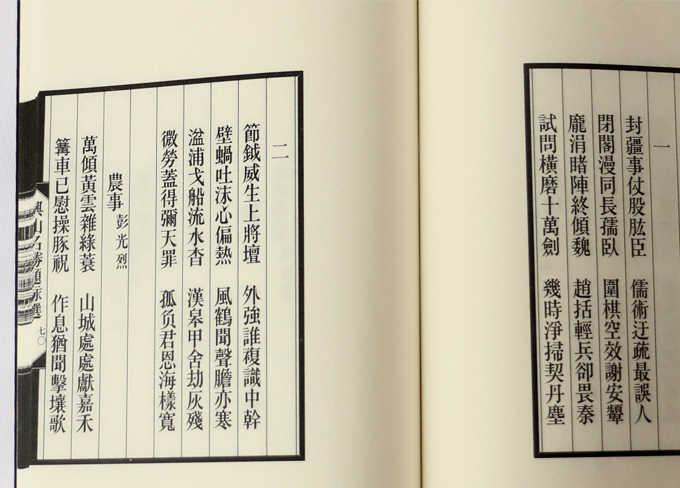 一
封疆事仗股肱臣　儒術迂疏最誤人
閉閣漫同長孺臥　圍棋空效謝安顰
龐涓睹陣終傾魏　趙括輕兵卻畏秦
試問橫磨十萬劍　幾時淨掃契丹塵
二
節鉞威生上將壇　外強誰複識中幹
壁蝸吐沫心偏熱　風鶴聞聲膽亦寒
湓浦戈船流水杳　漢皋甲舍劫灰殘
微勞蓋得彌天罪　孤负君恩海樣寬
農事 彭光烈
萬傾黃雲雜綠蓑　山城處處獻嘉禾
篝車已慰操豚祝　作息猶聞擊壤歌
興山名勝題詠選 七〇